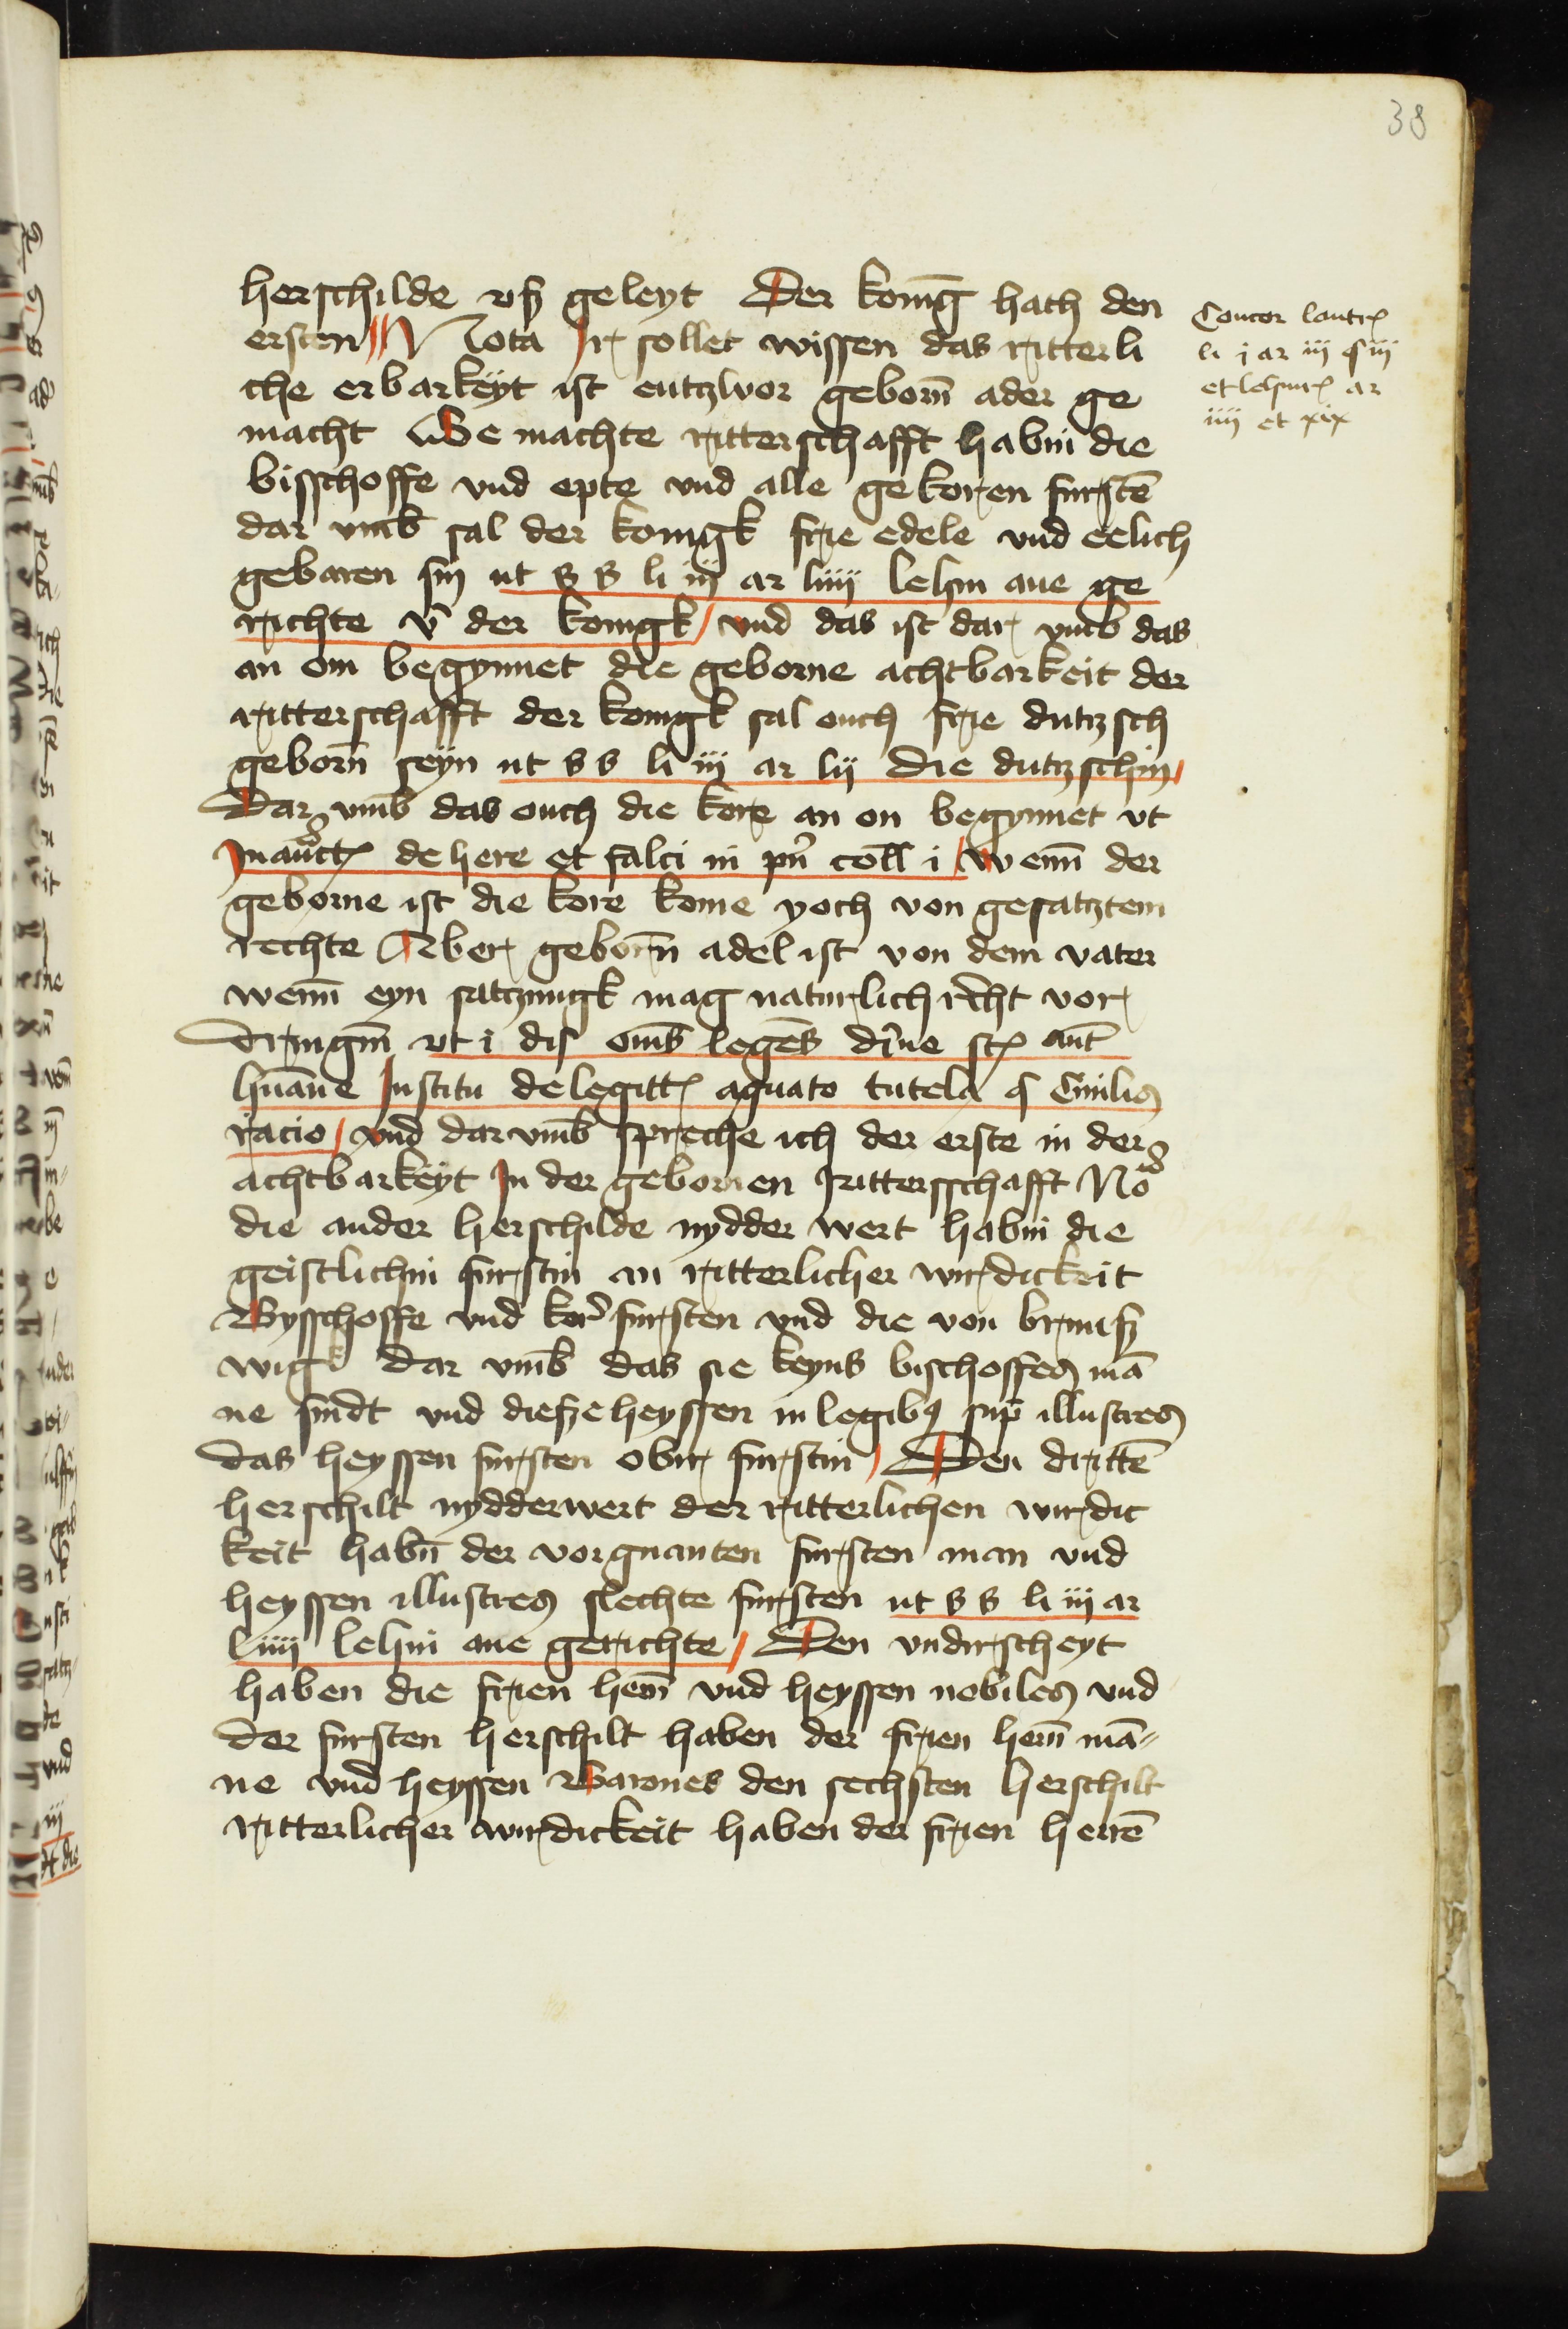 38
herschilde vß geleyt Der konig̅ hath den
ersten Nota Ir sollet wissen das ritterli
che erbarkëyt ist entzwor geborn̅ ader ge
macht Ge machte ritterschafft habin die
bisschoffe vnd epte vnd alle gekoren furste̅
dar vmb̅ sal der konigk frie edele vnd eelich
gebaren sin ut ß ß li iij ar liiij lehin ane ge
richte v̅ der konigk / vnd das ist dar vmb das
an om begynnet die geborne achtbarkeit der
ritterschafft der konigk sal ouch frie dutzsch
geborn̅ seÿn ut ß ß li iij ar lij die dutzschin /
Dar vmb̅ das ouch die kore an on begynnet vt
In auct̅ de here et falci in pn̅ coll̅ i / wenn̅ der
geborne ist die kore kome yoch von gesatztem
rechte Aber geborn̅ adel ist von dem vater
wenn̅ eyn satzungk mag naturlich recht vor
dringin̅ vt i dis om̅s leges̅ di̅ue st aut̅
hua̅ne Institu de legitt agnato tutela § Ciuilis
racio / vnd darvmb̅ spreche ich der erste in der
achtbarkëyt In der gebornen Rittersschafft No
die ander herschilde nydder wert habin die
geistlichin furstin an ritterlicher wirdickeit
Bysschoffe vnd kor̅ fursten vnd die von brunß
wigk dar vmb̅ das sie keyns bischoffes ma̅
ne sindt vnd dieße heyssen in legib9 sup̅ illustres
das heyssen fursten obir furstin / Den dritte̅
herschilt nydderwert der ritterlichen wirdic
keit habn̅ der vorgnanten fursten man vnd
heyssen illustres slechte fursten ut ß ß li iij ar
liiij lehin ane gerichte / Den vndirscheyt
haben die frien hern̅ vnd heyssen nobiles vnd
der fursten herschilt haben der frien hern̅ ma̅-
ne vnd heyssen Barones den sechsten herschilt
ritterlicher wirdickeit haben der frien herre̅
Concor lantr
li j ar iij § iij
et lehnr ar
iiij et xix